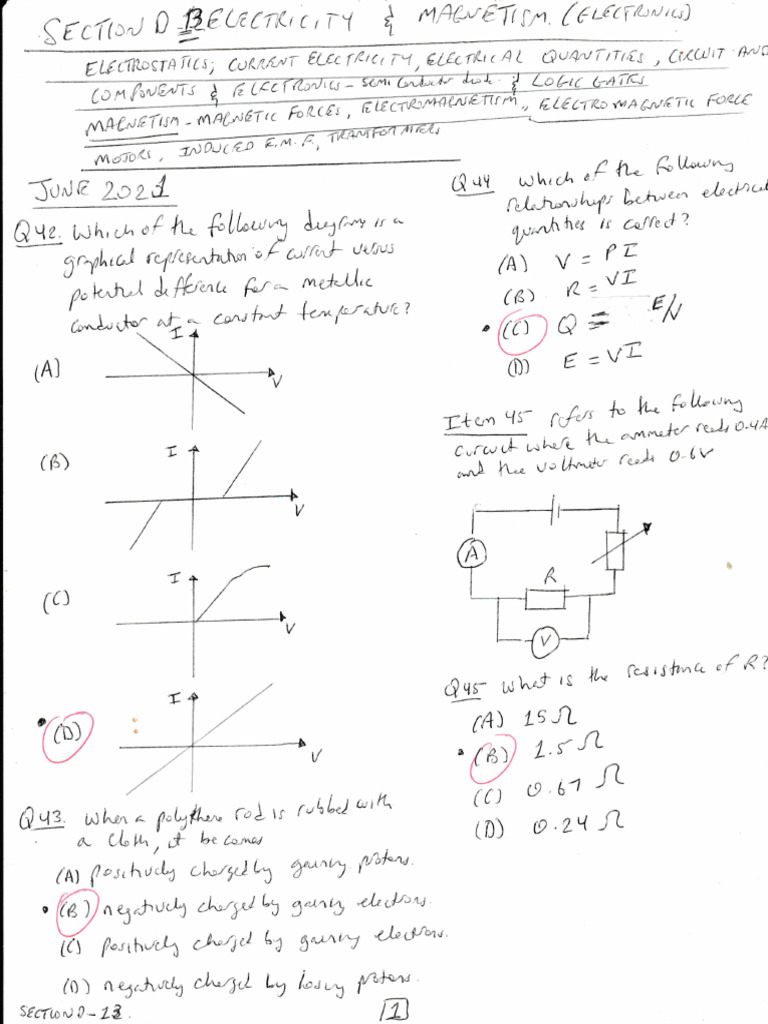 SECTION D B ELECTRICITY & MAGNETISM. (ELECTRONICS)
ELECTROSTATICS; CURRENT ELECTRICITY, ELECTRICAL QUANTITIES, CIRCUIT AND
COMPONENTS & ELECTRONICS - SEMI Conductor diode & LOGIC GATES
MAGNETISM - MAGNETIC FORCES, ELECTROMAGNETISM, ELECTROMAGNETIC FORCE
MOTORS, INDUCED E.M.F., TRANSFORMERS
JUNE 2021
Q42. Which of the following diagrams is a
graphical representation of current versus
potential difference for a metallic
conductor at a constant temperature?
(A)
I
V
(B)
I
V
(C)
I
V
(D)
I
V
Q43. When a polythene rod is rubbed with
a cloth, it becomes
(A) positively charged by gaining protons.
(B) negatively charged by gaining electrons.
(C) positively charged by gaining electrons.
(D) negatively charged by losing protons.
SECTION D-
1
Q44 Which of the following
relationships between electrical
quantities is correct?
(A) V = PI
(B) R = VI
(C) Q = E/V
(D) E = VI
Item 45 refers to the following
circuit where the ammeter reads 0.4A
and the voltmeter reads 0.6V
A
R
V
Q45 What is the resistance of R?
(A) 15 Ω
(B) 1.5 Ω
(C) 0.67 Ω
(D) 0.24 Ω